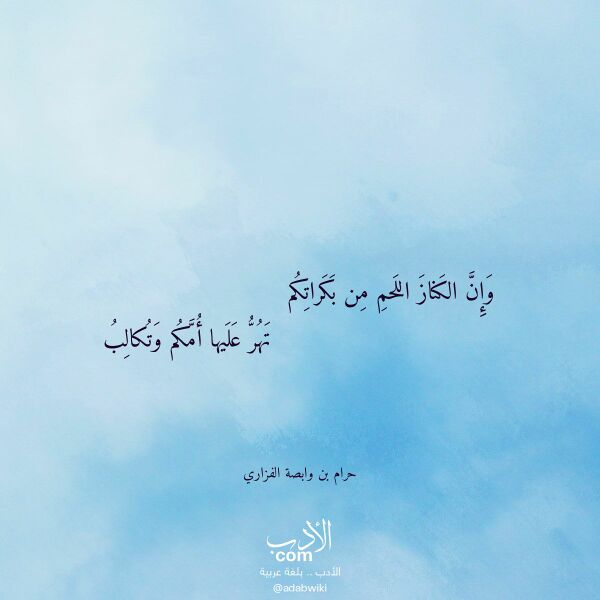 وَإِنَّ الكَنازَ اللَحمِ مِن بَكَراتِكُم
تَهُرُّ عَلَيها أُمَّكُم وَتُكالِبُ
حرام بن وابصة الفزاري
الأدب
com
الأدب .. بلغة عربية
@adabwiki